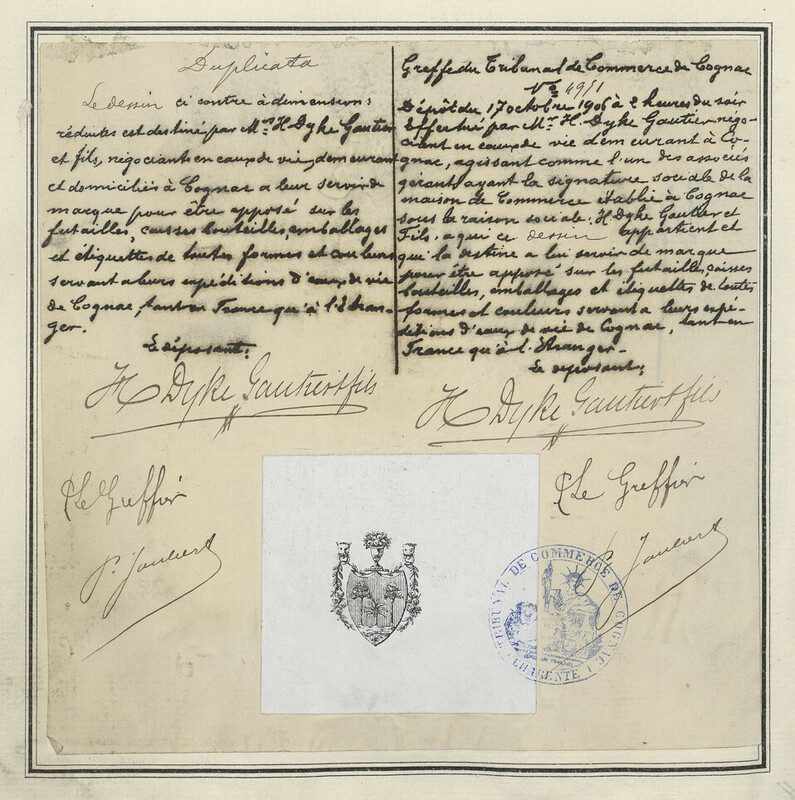 Duplicata
Le dessin ci contre à dimensions
réduites est destiné par Mrs H. Dyke Gautier
et fils, négociants en eaux de vie, demeurant
et domiciliés à Cognac a leur servir de
marque pour être apposé sur les
futailles, caisses bouteilles, emballages
et étiquettes de toutes formes et couleurs
servant a leurs expéditions d'eaux de vie
de Cognac, tant en France qu'à l'Etran-
ger.
Le déposant:
H Dyke Gautier & fils
Le Greffier
P. Joubert
Greffe du Tribunal de Commerce de Cognac
No 4971
Dépôt du 17 octobre 1906 à 2 heures du soir
Effectué par Mr. H. Dyke Gautier négo-
ciant en eaux de vie demeurant à Co-
gnac, agissant comme l'un des associés
gérants ayant la signature sociale de la
maison de Commerce établie à Cognac
sous la raison sociale: H. Dyke Gautier et
Fils. a qui ce dessin appartient et
qui la destine a lui servir de marque
pour être apposé sur les futailles, caisses
bouteilles, emballages et étiquettes de toutes
formes et couleurs servant a leurs expé-
ditions d'eaux de vie de Cognac, tant en
France qu'à l'Etranger-
Le déposant:
H Dyke Gautier & fils
Le Greffier
P. Joubert
TRIBUNAL DE COMMERCE DE COGNAC
CHARENTE